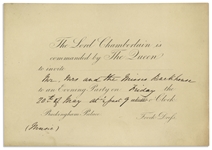 The Lord Chamberlain is
commanded by The Queen
to invite
Mr. Mrs. and the Misses
to an Evening Party on Friday the
20th of May at 9 o'Clock
Buckingham Palace